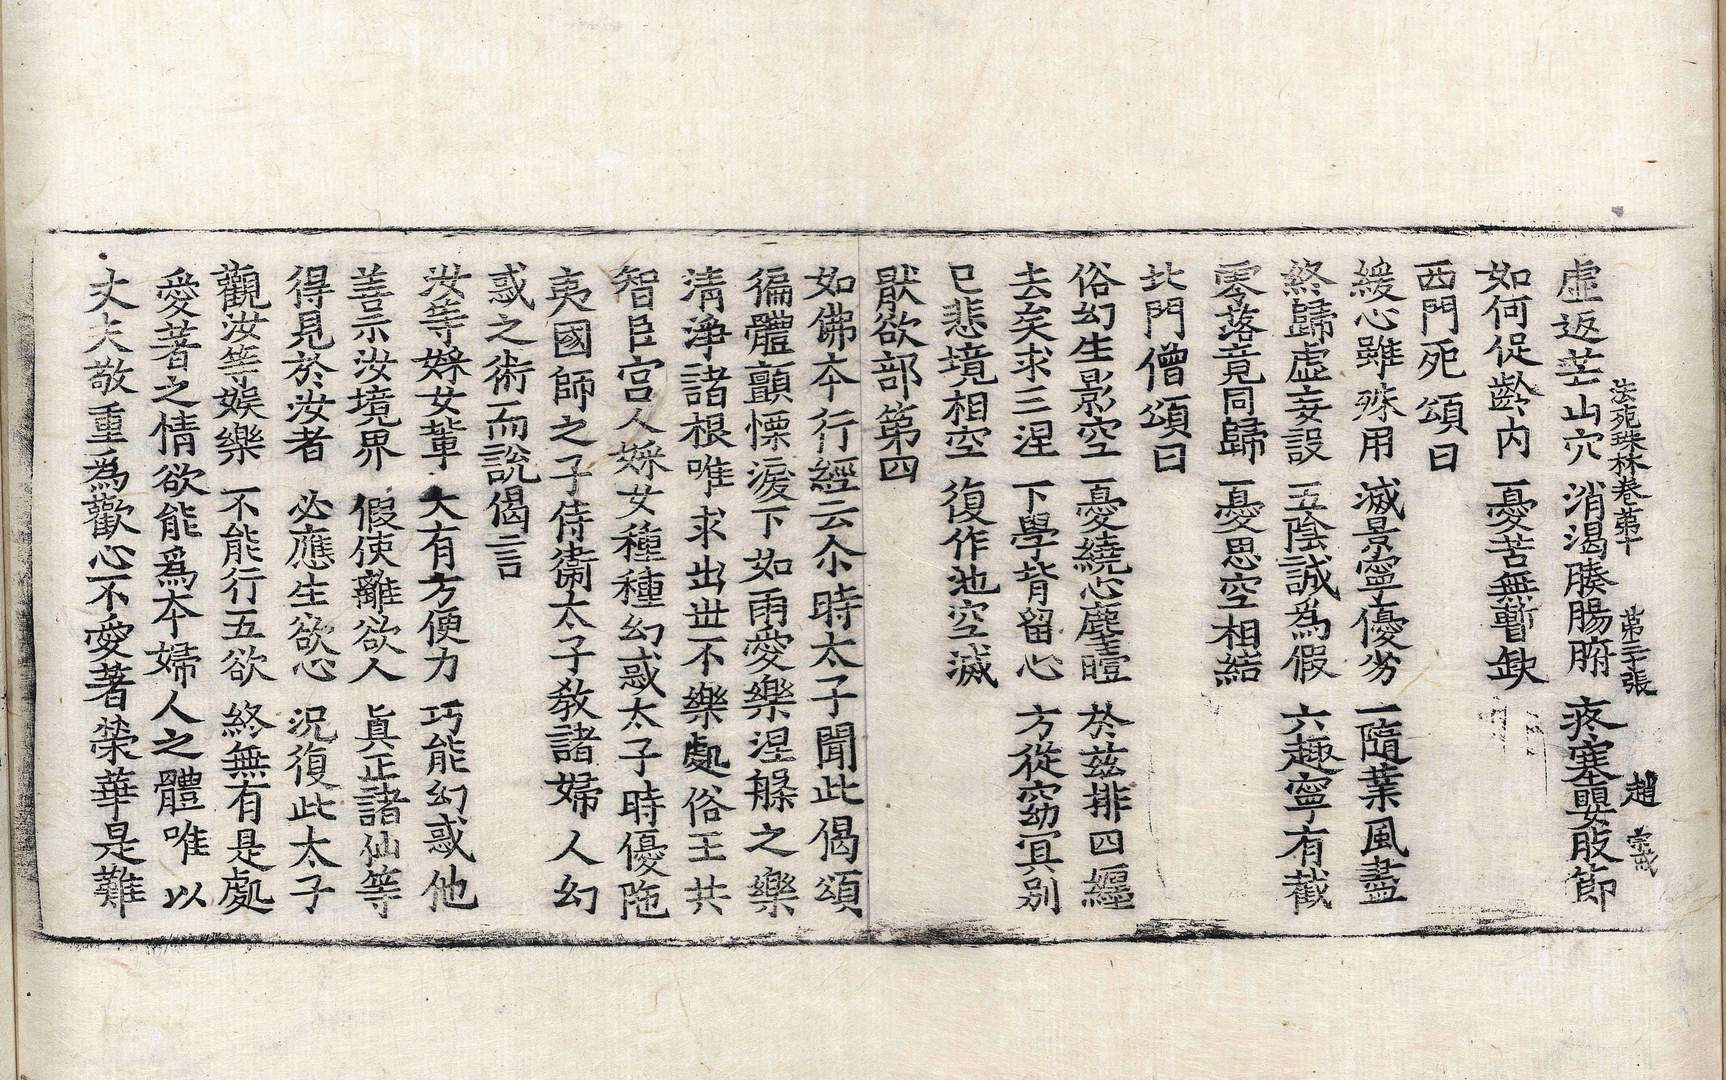 法苑珠林卷第十　第二十張　趙
虛返芒山穴　消渴腠腸腑　疼塞嬰肢節
如何促齡內　憂苦無暫缺
西門死頌曰
緩心雖殊用　滅景寧優劣　一隨業風盡
終歸虛妄設　五陰誠為假　六趣寧有截
零落竟同歸　憂思空相結
北門僧頌曰
俗幻生影空　憂繞心塵曀　於茲排四纏
去矣求三涅　下學背留心　方從窈冥別
已悲境相空　復作池空滅
猒欲部第四
如佛夲行經云尒時太子聞此偈頌
徧體顫慄淚下如雨愛樂涅槃之樂
清淨諸根唯求出丗不樂處俗王共
智臣宮人婇女種種幻惑太子時優陁
夷國師之子侍衛太子教諸婦人幻
惑之術而說偈言
汝等婇女輩　大有方便力　巧能幻惑他
善示汝境界　假使離欲人　真正諸仙等
得見於汝者　必應生欲心　況復此太子
觀汝等娛樂　不能行五欲　終無有是處
愛著之情欲能爲夲婦人之體唯以
丈夫敬重為歡心不愛著榮華是難